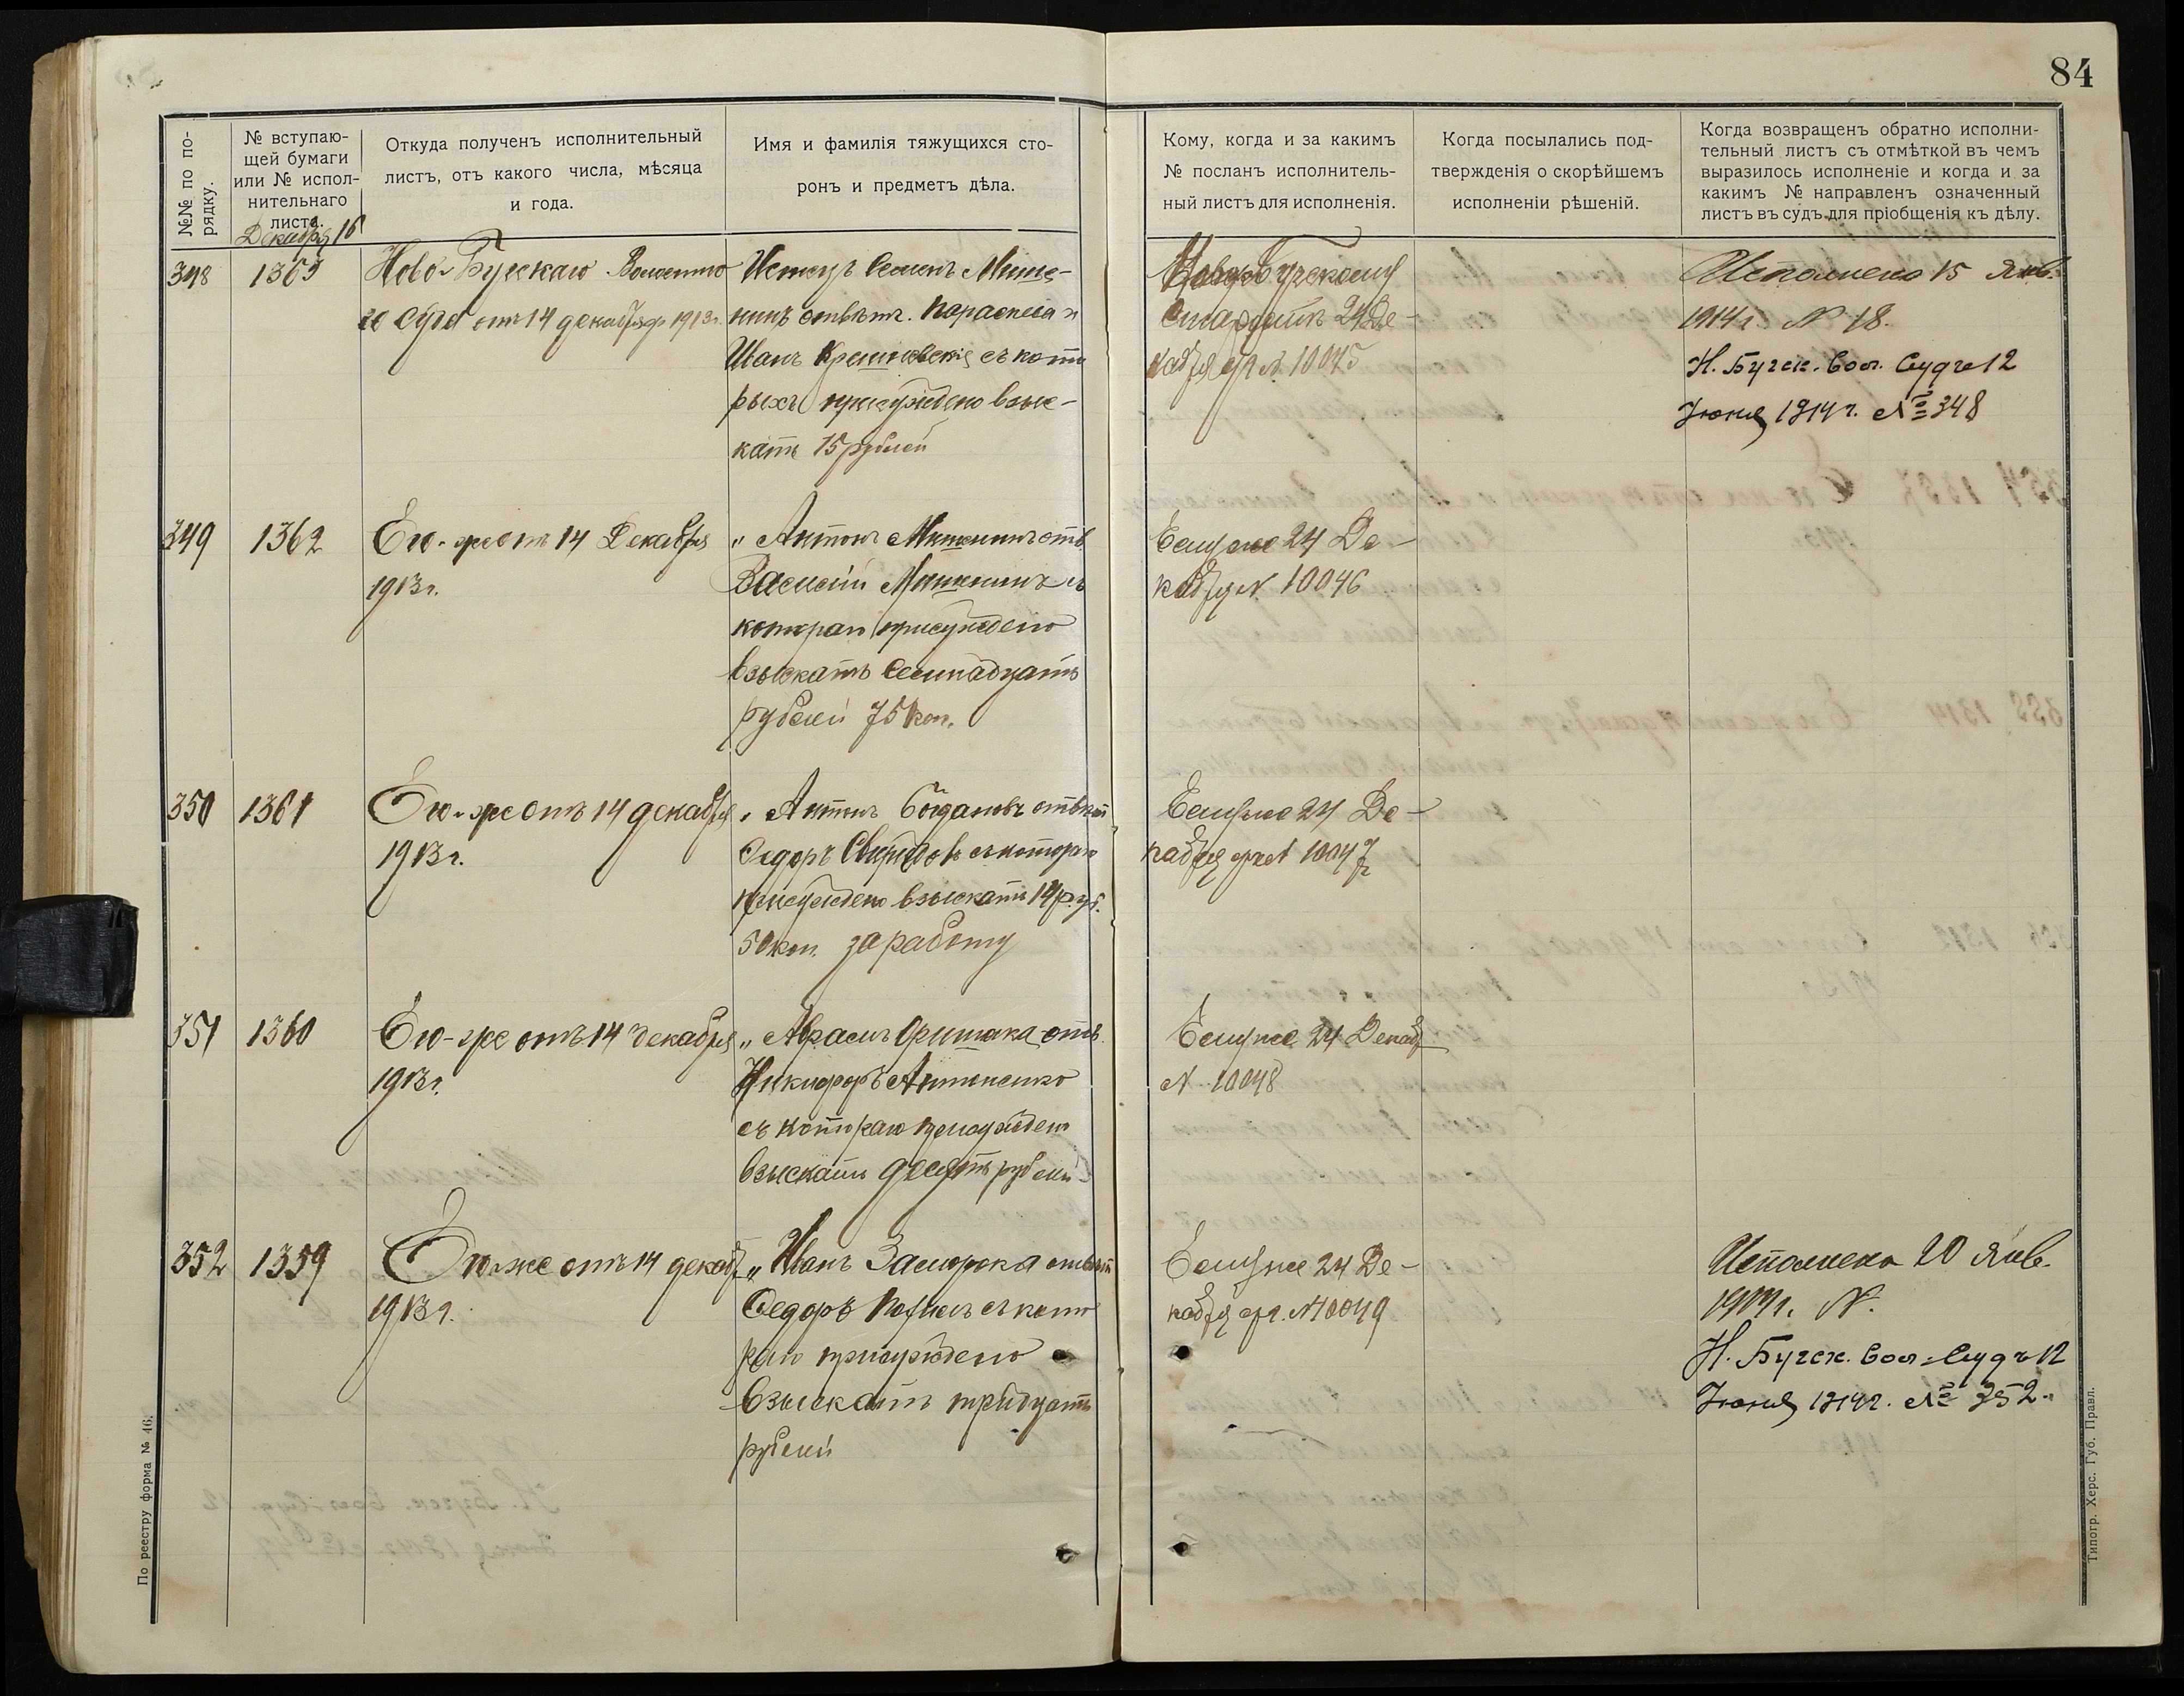 84
№№ по по-
рядку.
№ вступаю-
щей бумаги
или № испол-
нительнаго
листа.
Откуда полученъ исполнительный
листъ, отъ какого числа, мѣсяца
и года.
Имя и фамилія тяжущихся сто-
ронъ и предметъ дѣла.
Кому, когда и за какимъ
№ посланъ исполнитель-
ный листъ для исполненія.
Когда посылались под-
твержденія о скорѣйшемъ
исполненіи рѣшеній.
Когда возвращенъ обратно исполни-
тельный листъ съ отмѣткой въ чемъ
выразилось исполненіе и когда и за
какимъ № направленъ означенный
листъ въ судъ для пріобщенія къ дѣлу.
Декабря 16
348
1363
Ново-Бугскаго Волостно
го Суда отъ 14 декабря 1913г.
Истецъ Семенъ
отвѣтч. Параскева и
Иванъ съ кото
рыхъ присуждено взыс-
кать 15 рублей
Ново Бугскому
Старостѣ 24 Де-
кабря № 10045
Исполнено 15 Янв.
1914 г. № 18.
Н. Бугск. Вол. Суд 12
Июня 1914 г. № 348
349
1362
Его-же отъ 14 Декабря
1913 г.
„ Антонъ отв
Василій съ
котораго присуждено
взыскать Семнадцать
рублей 75 коп.
Ему же 24 Де-
кабря № 10046
350
1361
Его-же отъ 14 декабря
1913 г.
„ Антонъ Богдановъ отвѣт
Сидоръ Свиридовъ съ котораго
присуждено взыскать 14 руб.
50 коп. за работу
Ему же 24 Де-
кабря № 10047
351
1360
Его-же отъ 14 декабря
1913 г.
„ Абрамъ отв
Никифоръ
съ котораго присуждено
взыскать десять рублей
Ему же 24 Декаб
№ 10048
352
1359
Его-же отъ 14 декаб
1913 г.
„ Иванъ отвѣт
Федоръ съ кото
раго присуждено
взыскать тридцать
рублей
Ему же 24 Де-
кабря № 10049
Исполнено 20 Янв.
1914 г. №.
Н. Бугск. Вол. Судъ 12
Июня 1914 г. № 352.
По реестру форма № 46.
Типогр. Херс. Губ. Правл.